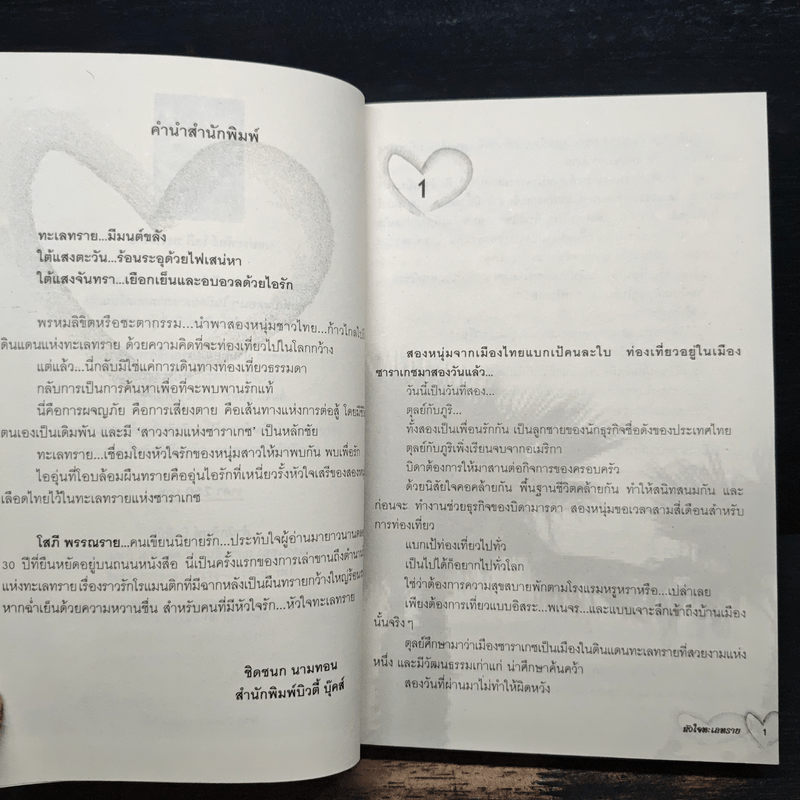 คำนำสำนักพิมพ์
ทะเลทราย...มีมนต์ขลัง
ใต้แสงตะวัน...ร้อนระอุด้วยไฟเสน่หา
ใต้แสงจันทรา...เยือกเย็นและอบอวลด้วยไอรัก
พรหมลิขิตหรือชะตากรรม...นำพาสองหนุ่มชาวไทย...ก้าวไกลไป
ดินแดนแห่งทะเลทราย ด้วยความคิดที่จะท่องเที่ยวไปในโลกกว้าง
แต่แล้ว...นี่กลับมิใช่แค่การเดินทางท่องเที่ยวธรรมดา
กลับการเป็นการค้นหาเพื่อที่จะพบพานรักแท้
นี่คือการผจญภัย คือการเสี่ยงตาย คือเส้นทางแห่งการต่อสู้ โดยมีชีวิต
ตนเองเป็นเดิมพัน และมี 'สาวงามแห่งซาราเกซ' เป็นหลักชัย
ทะเลทราย...เชื่อมโยงหัวใจรักของหนุ่มสาวให้มาพบกัน พบเพื่อรัก
ไออุ่นที่โอบล้อมผืนทรายคืออุ่นไอรักที่เหนี่ยวรั้งหัวใจเสรีของสองหนุ่ม
เลือดไทยไว้ในทะเลทรายแห่งซาราเกซ
โสภี พรรณราย...คนเขียนนิยายรัก...ประทับใจผู้อ่านมายาวนานตลอด
30 ปีที่ยืนหยัดอยู่บนถนนหนังสือ นี่เป็นครั้งแรกของการเล่าขานถึงตำนาน
แห่งทะเลทรายเรื่องราวรักโรแมนติกที่มีฉากหลังเป็นผืนทรายกว้างใหญ่ร้อนระอุ
หากฉ่ำเย็นด้วยความหวานชื่น สำหรับคนที่มีหัวใจรัก...หัวใจทะเลทราย
ชิดชนก นามทอน
สำนักพิมพ์บิวตี้ บุ๊คส์
1
สองหนุ่มจากเมืองไทยแบกเป้คนละใบ ท่องเที่ยวอยู่ในเมือง
ซาราเกซมาสองวันแล้ว...
วันนี้เป็นวันที่สอง...
ตุลย์กับภูริ...
ทั้งสองเป็นเพื่อนรักกัน เป็นลูกชายของนักธุรกิจชื่อดังของประเทศไทย
ตุลย์กับภูริเพิ่งเรียนจบจากอเมริกา
บิดาต้องการให้มาสานต่อกิจการของครอบครัว
ด้วยนิสัยใจคอคล้ายกัน พื้นฐานชีวิตคล้ายกัน ทำให้สนิทสนมกัน และ
ก่อนจะ ทำงานช่วยธุรกิจของบิดามารดา สองหนุ่มขอเวลาสามสี่เดือนสำหรับ
การท่องเที่ยว
แบกเป้ท่องเที่ยวไปทั่ว
เป็นไปได้ก็อยากไปทั่วโลก
ใช่ว่าต้องการความสุขสบายพักตามโรงแรมหรูหราหรือ...เปล่าเลย
เพียงต้องการเที่ยวแบบอิสระ...พเนจร...และแบบเจาะลึกเข้าถึงบ้านเมือง
นั้นจริงๆ
ตุลย์ศึกษามาว่าเมืองซาราเกซเป็นเมืองในดินแดนทะเลทรายที่สวยงามแห่ง
หนึ่ง และมีวัฒนธรรมเก่าแก่ น่าศึกษาค้นคว้า
สองวันที่ผ่านมาไม่ทำให้ผิดหวัง
หัวใจทะเลทราย 1